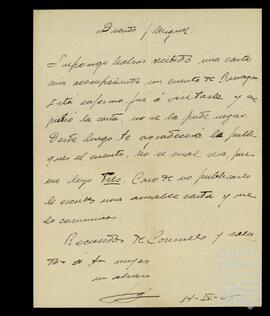 Querido Miguel.
Supongo habras recibido una carta
mia acompañando un cuento de
Está enfermo fui á visitarle y me
pidió la carta, no se la pude negar.
Desde luego te agradecerá la publi-
ques el cuento, no sé cual sea pues
me leyó Tres. Caso de no publicarlo
le escribes una amable carta y me
lo comunicas
Recuerdos de Consuelo y salu-
dos á tu mujer
un abrazo
14-IV-